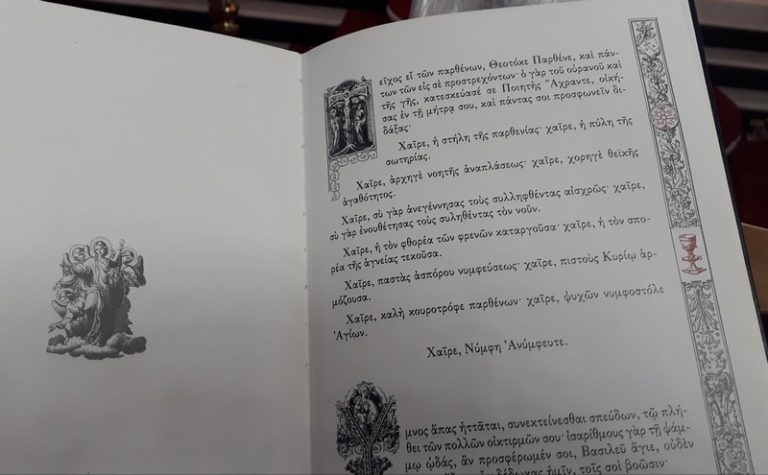 εῖχος εἶ τῶν παρθένων, Θεοτόκε Παρθένε, καὶ πάν-
των τῶν εἰς σὲ προστρεχόντων· ὁ γὰρ τοῦ οὐρανοῦ καὶ
τῆς γῆς, κατεσκεύασέ σε Ποιητὴς Ἄχραντε, οἰκή-
σας ἐν τῇ μήτρᾳ σου, καὶ πάντας σοι προσφωνεῖν δι-
δάξας·
Χαῖρε, ἡ στήλη τῆς παρθενίας· χαῖρε, ἡ πύλη τῆς
σωτηρίας.
Χαῖρε, ἀρχηγὲ νοητῆς ἀναπλάσεως· χαῖρε, χορηγὲ θεϊκῆς
ἀγαθότητος.
Χαῖρε, σὺ γὰρ ἀνεγέννησας τοὺς συλληφθέντας αἰσχρῶς· χαῖρε,
σὺ γὰρ ἐνουθέτησας τοὺς συληθέντας τὸν νοῦν.
Χαῖρε, ἡ τὸν φθορέα τῶν φρενῶν καταργοῦσα· χαῖρε, ἡ τὸν σπο-
ρέα τῆς ἁγνείας τεκοῦσα.
Χαῖρε, παστὰς ἀσπόρου νυμφεύσεως· χαῖρε, πιστοὺς Κυρίῳ ἁρ-
μόζουσα.
Χαῖρε, καλὴ κουροτρόφε παρθένων· χαῖρε, ψυχῶν νυμφοστόλε
Ἁγίων.
Χαῖρε, Νύμφη Ἀνύμφευτε.
Υ
μνος ἅπας ἡττᾶται, συνεκτείνεσθαι σπεύδων, τῷ πλή-
θει τῶν πολλῶν οἰκτιρμῶν σου· ἰσαρίθμους γὰρ τῇ ψάμ-
μῳ ᾠδάς, ἂν προσφέρωμέν σοι, Βασιλεῦ ἅγιε, οὐδὲν
δέδωκας ἡμῖν, τοῖς σοὶ βοῶσιν·